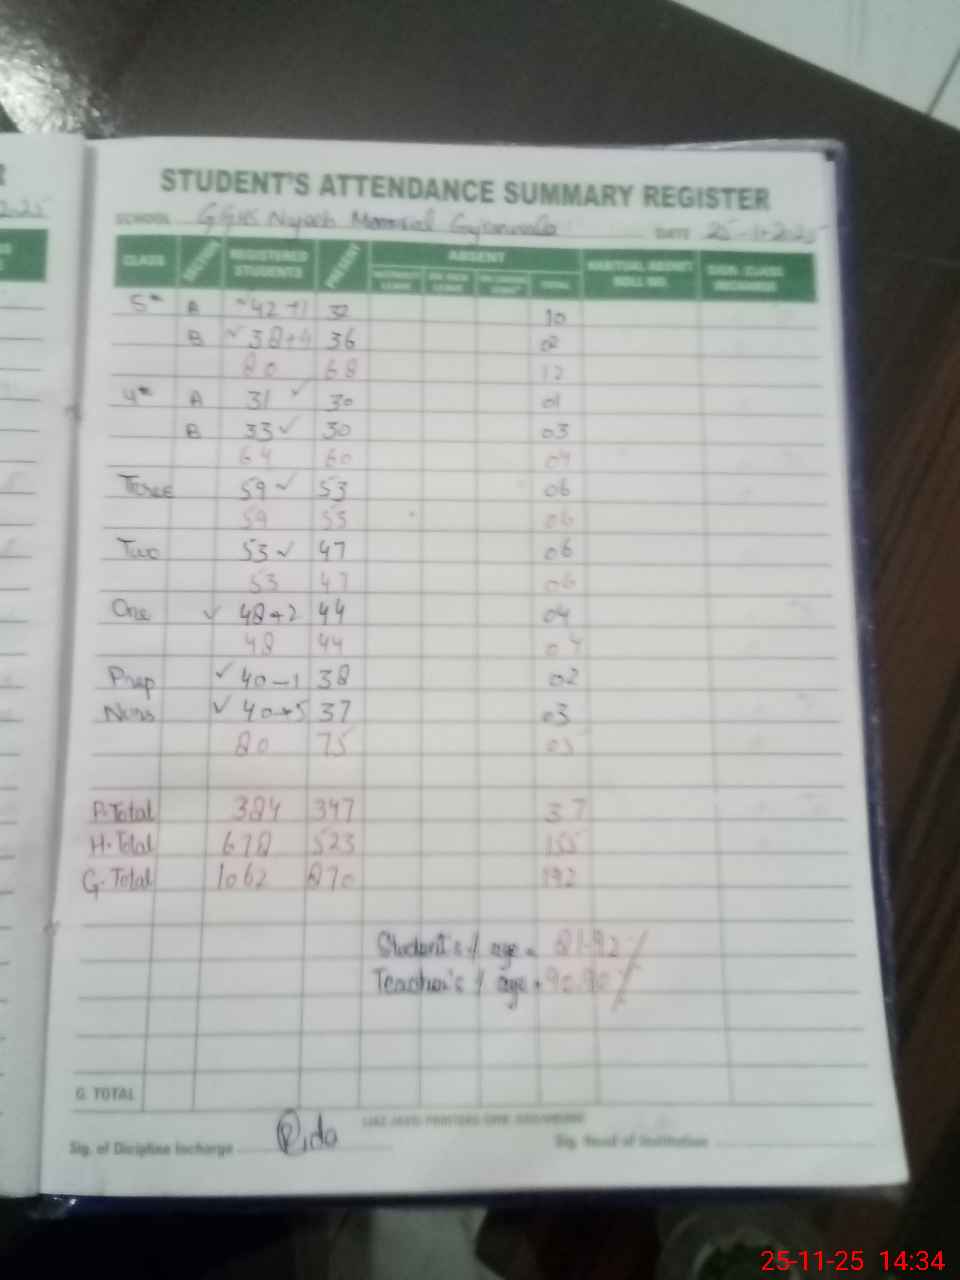 STUDENT'S ATTENDANCE SUMMARY REGISTER
SCHOOL GGHS Memorial DATE 25-11-2025
CLASS SECTION REGISTERED STUDENTS PRESENT ABSENT HABITUAL ABSENT ROLL NO. SIGN. CLASS INCHARGE
WITHOUT LEAVE ON SICK LEAVE TOTAL
5th A 42+1 32 10
B 38+4 36 02
80 68 12
4th A 31 30 01
B 33 30 03
64 60 04
Three 59 53 06
59 53 06
Two 53 47 06
53 47 06
One 48+2 44 04
48 44 04
Prep 40-1 38 02
Nurs 40+5 37 03
80 75 05
P.Total 384 347 37
H.Total 678 523 155
G.Total 1062 870 192
Student's % age = 81.92%
Teacher's % age = 90.90%
G. TOTAL
Sig. of Discipline Incharge Rida Sig. Head of Institution
25-11-25 14:34